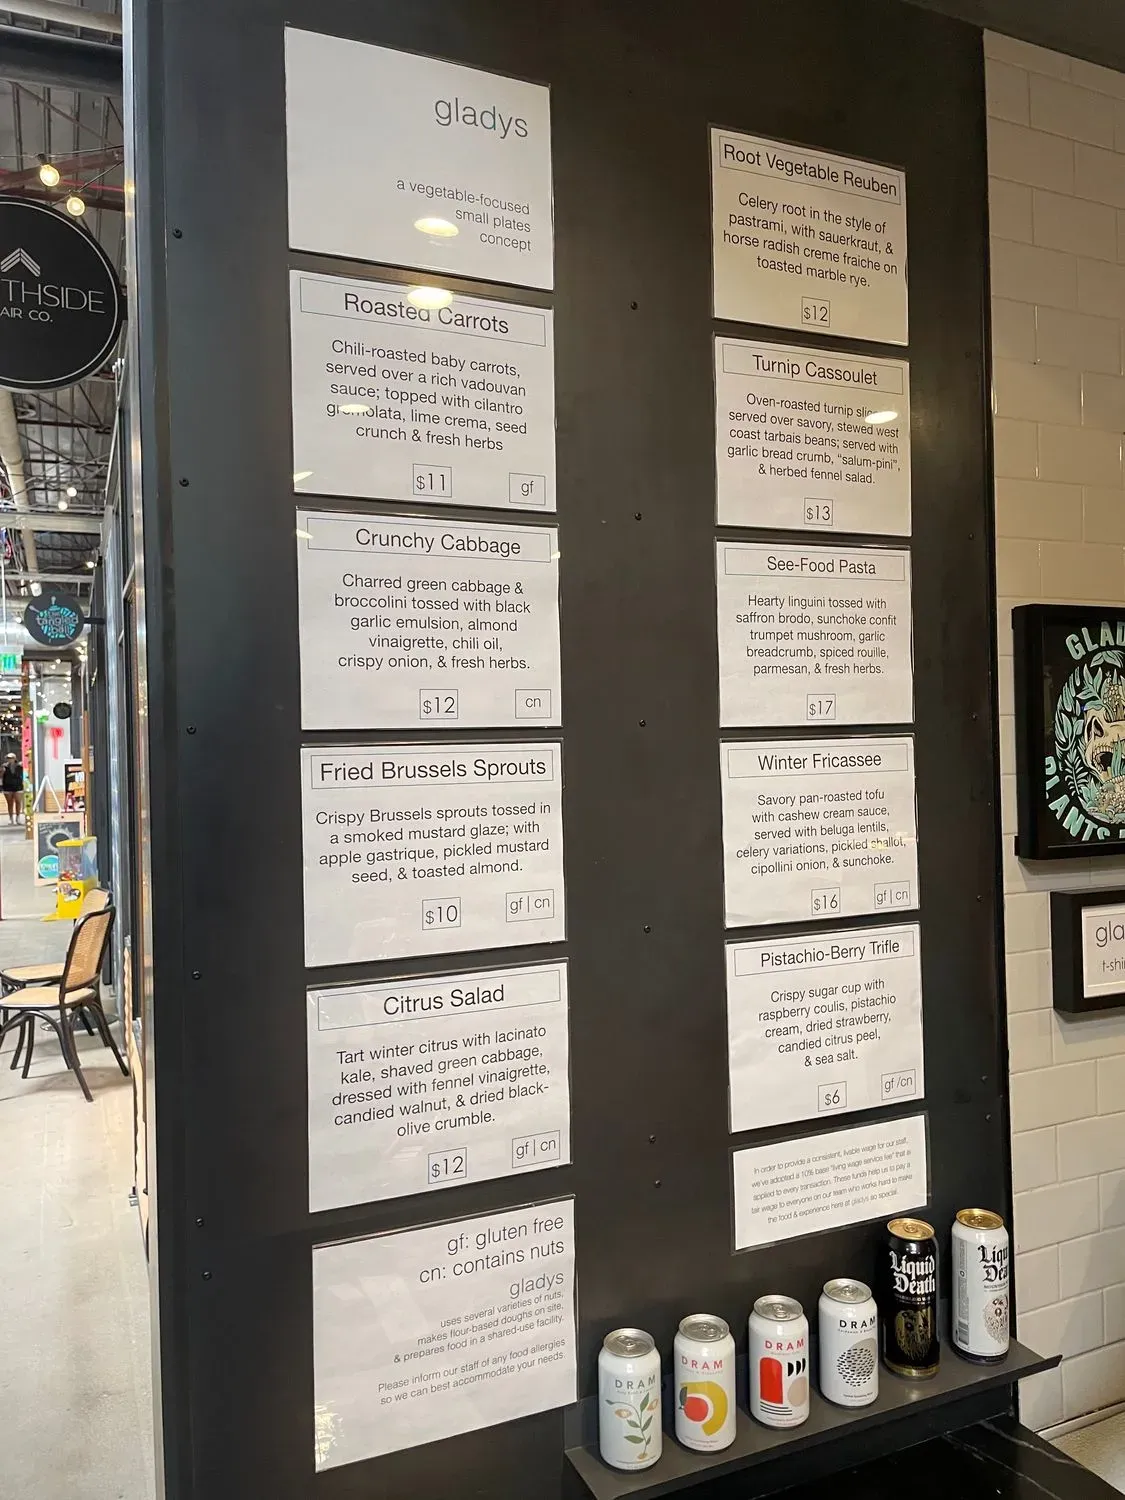 gladys
a vegetable-focused
small plates
concept
Roasted Carrots
Chili-roasted baby carrots,
served over a rich vadouvan
sauce; topped with cilantro
gremolata, lime crema, seed
crunch & fresh herbs
$11
gf
Crunchy Cabbage
Charred green cabbage &
broccolini tossed with black
garlic emulsion, almond
vinaigrette, chili oil,
crispy onion, & fresh herbs.
$12
cn
Fried Brussels Sprouts
Crispy Brussels sprouts tossed in
a smoked mustard glaze; with
apple gastrique, pickled mustard
seed, & toasted almond.
$10
gf | cn
Citrus Salad
Tart winter citrus with lacinato
kale, shaved green cabbage,
dressed with fennel vinaigrette,
candied walnut, & dried black-
olive crumble.
$12
gf | cn
gf: gluten free
cn: contains nuts
gladys
uses several varieties of nuts,
makes flour-based doughs on site,
& prepares food in a shared-use facility.
Please inform our staff of any food allergies
so we can best accommodate your needs.
Root Vegetable Reuben
Celery root in the style of
pastrami, with sauerkraut, &
horse radish creme fraiche on
toasted marble rye.
$12
Turnip Cassoulet
Oven-roasted turnip slices
served over savory, stewed west
coast tarbais beans; served with
garlic bread crumb, "salum-pini",
& herbed fennel salad.
$13
See-Food Pasta
Hearty linguini tossed with
saffron brodo, sunchoke confit
trumpet mushroom, garlic
breadcrumb, spiced rouille,
parmesan, & fresh herbs.
$17
Winter Fricassee
Savory pan-roasted tofu
with cashew cream sauce,
served with beluga lentils,
celery variations, pickled shallot,
cipollini onion, & sunchoke.
$16
gf | cn
Pistachio-Berry Trifle
Crispy sugar cup with
raspberry coulis, pistachio
cream, dried strawberry,
candied citrus peel,
& sea salt.
$6
gf /cn
In order to provide a consistent, livable wage for our staff,
we've adopted a 10% base "living wage service fee" that is
applied to every transaction. These funds help us to pay a
fair wage to everyone on our team who works hard to make
the food & experience here at gladys so special.
THSIDE
AIR CO.
tangled
GLAD
PLANTS
gla
t-shi
DRAM
DRAM
DRAM
DRAM
Liquid
Death
Liqu
Dea